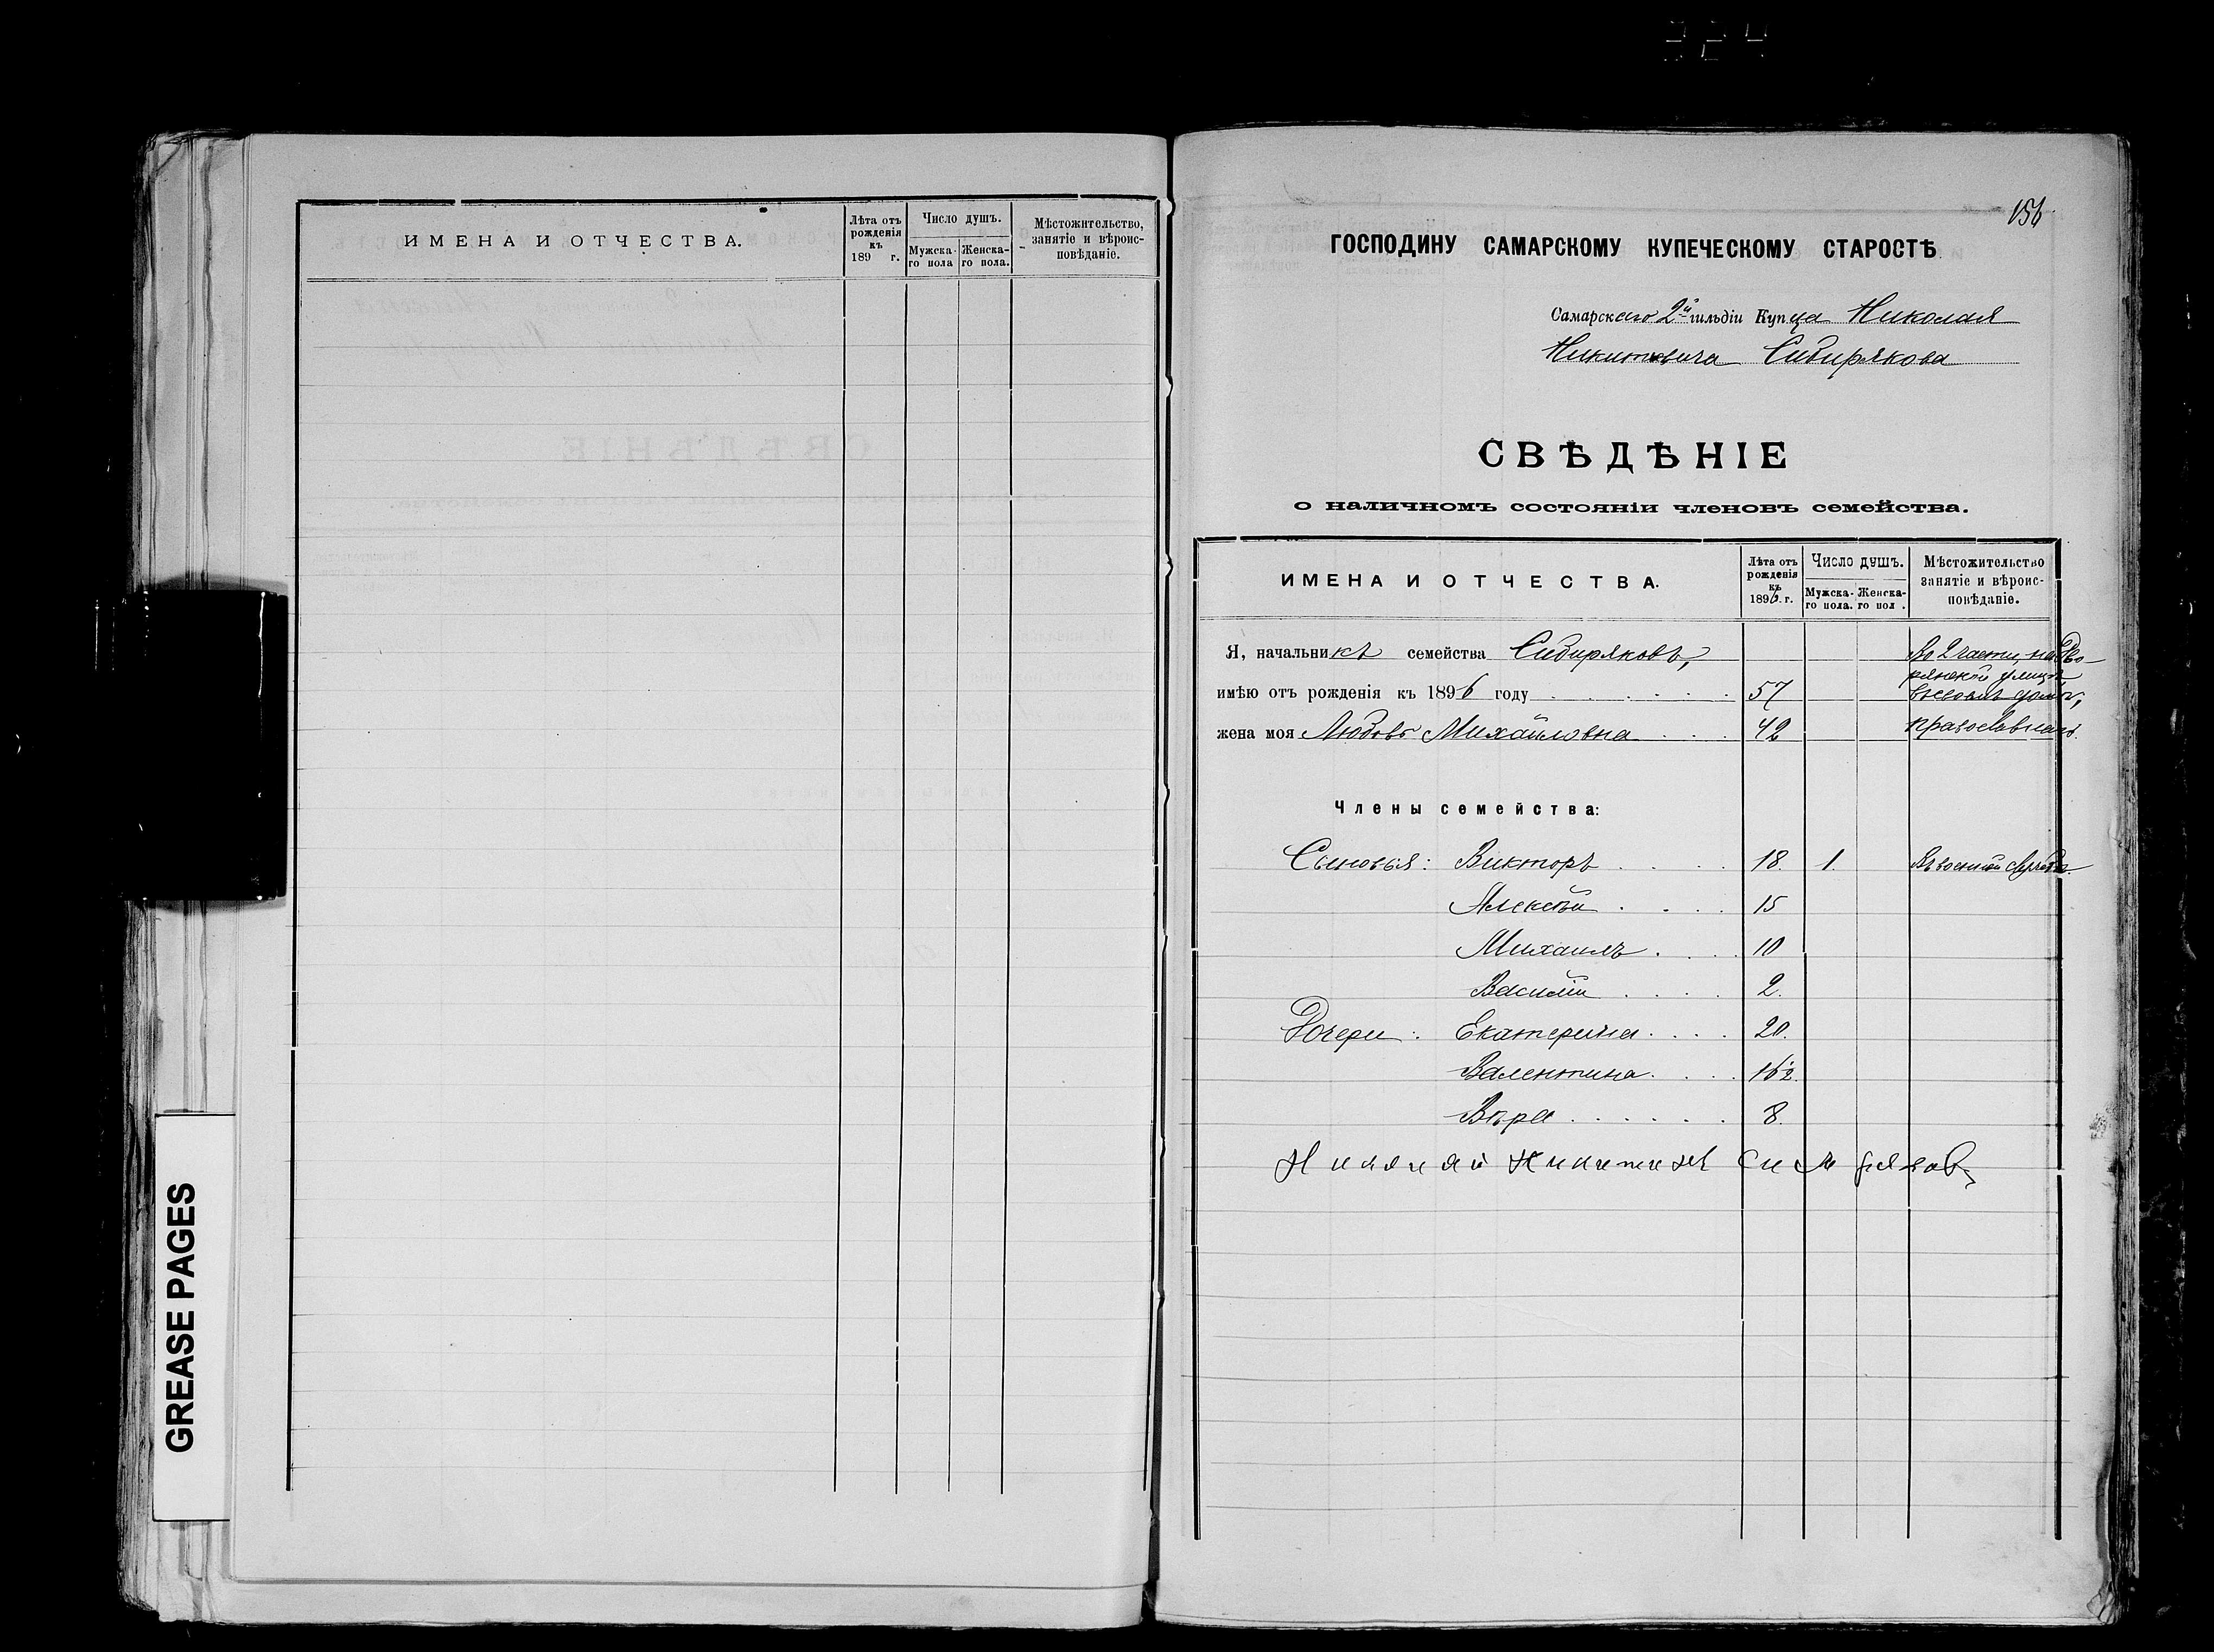 324
ИМЕНА И ОТЧЕСТВА.
Лѣта отъ рожденія къ 189 г.
Число душъ.
Мужска-го пола
Женска-го пола.
Мѣстожительство, занятіе и вѣроис-повѣданіе.
GREASE PAGES
156
ГОСПОДИНУ САМАРСКОМУ КУПЕЧЕСКОМУ СТАРОСТѢ
Самарскаго 2й гильдіи Купца Николая
Никитовича Сибирякова
СВѢДѢНІЕ
о наличномъ состояніи членовъ семейства.
ИМЕНА И ОТЧЕСТВА.
Лѣта отъ рожденія къ 1896 г.
Число душъ.
Мужска-го пола.
Женска-го пол .
Мѣстожительство занятіе и вѣроис-повѣданіе.
Я, начальникъ семейства Сибиряковъ,
имѣю отъ рожденія къ 1896 году 57
жена моя Любовь Михайловна 42
Во 2 части, на Дво-
рянской улицѣ
въ своемъ домѣ,
Члены семейства:
Сыновья: Викторъ 18. 1. Въ военной службѣ.
Алексѣй 15
Михаилъ 10
Василій 2.
Дочери: Екатерина 20.
Валентина
Вѣра 8.